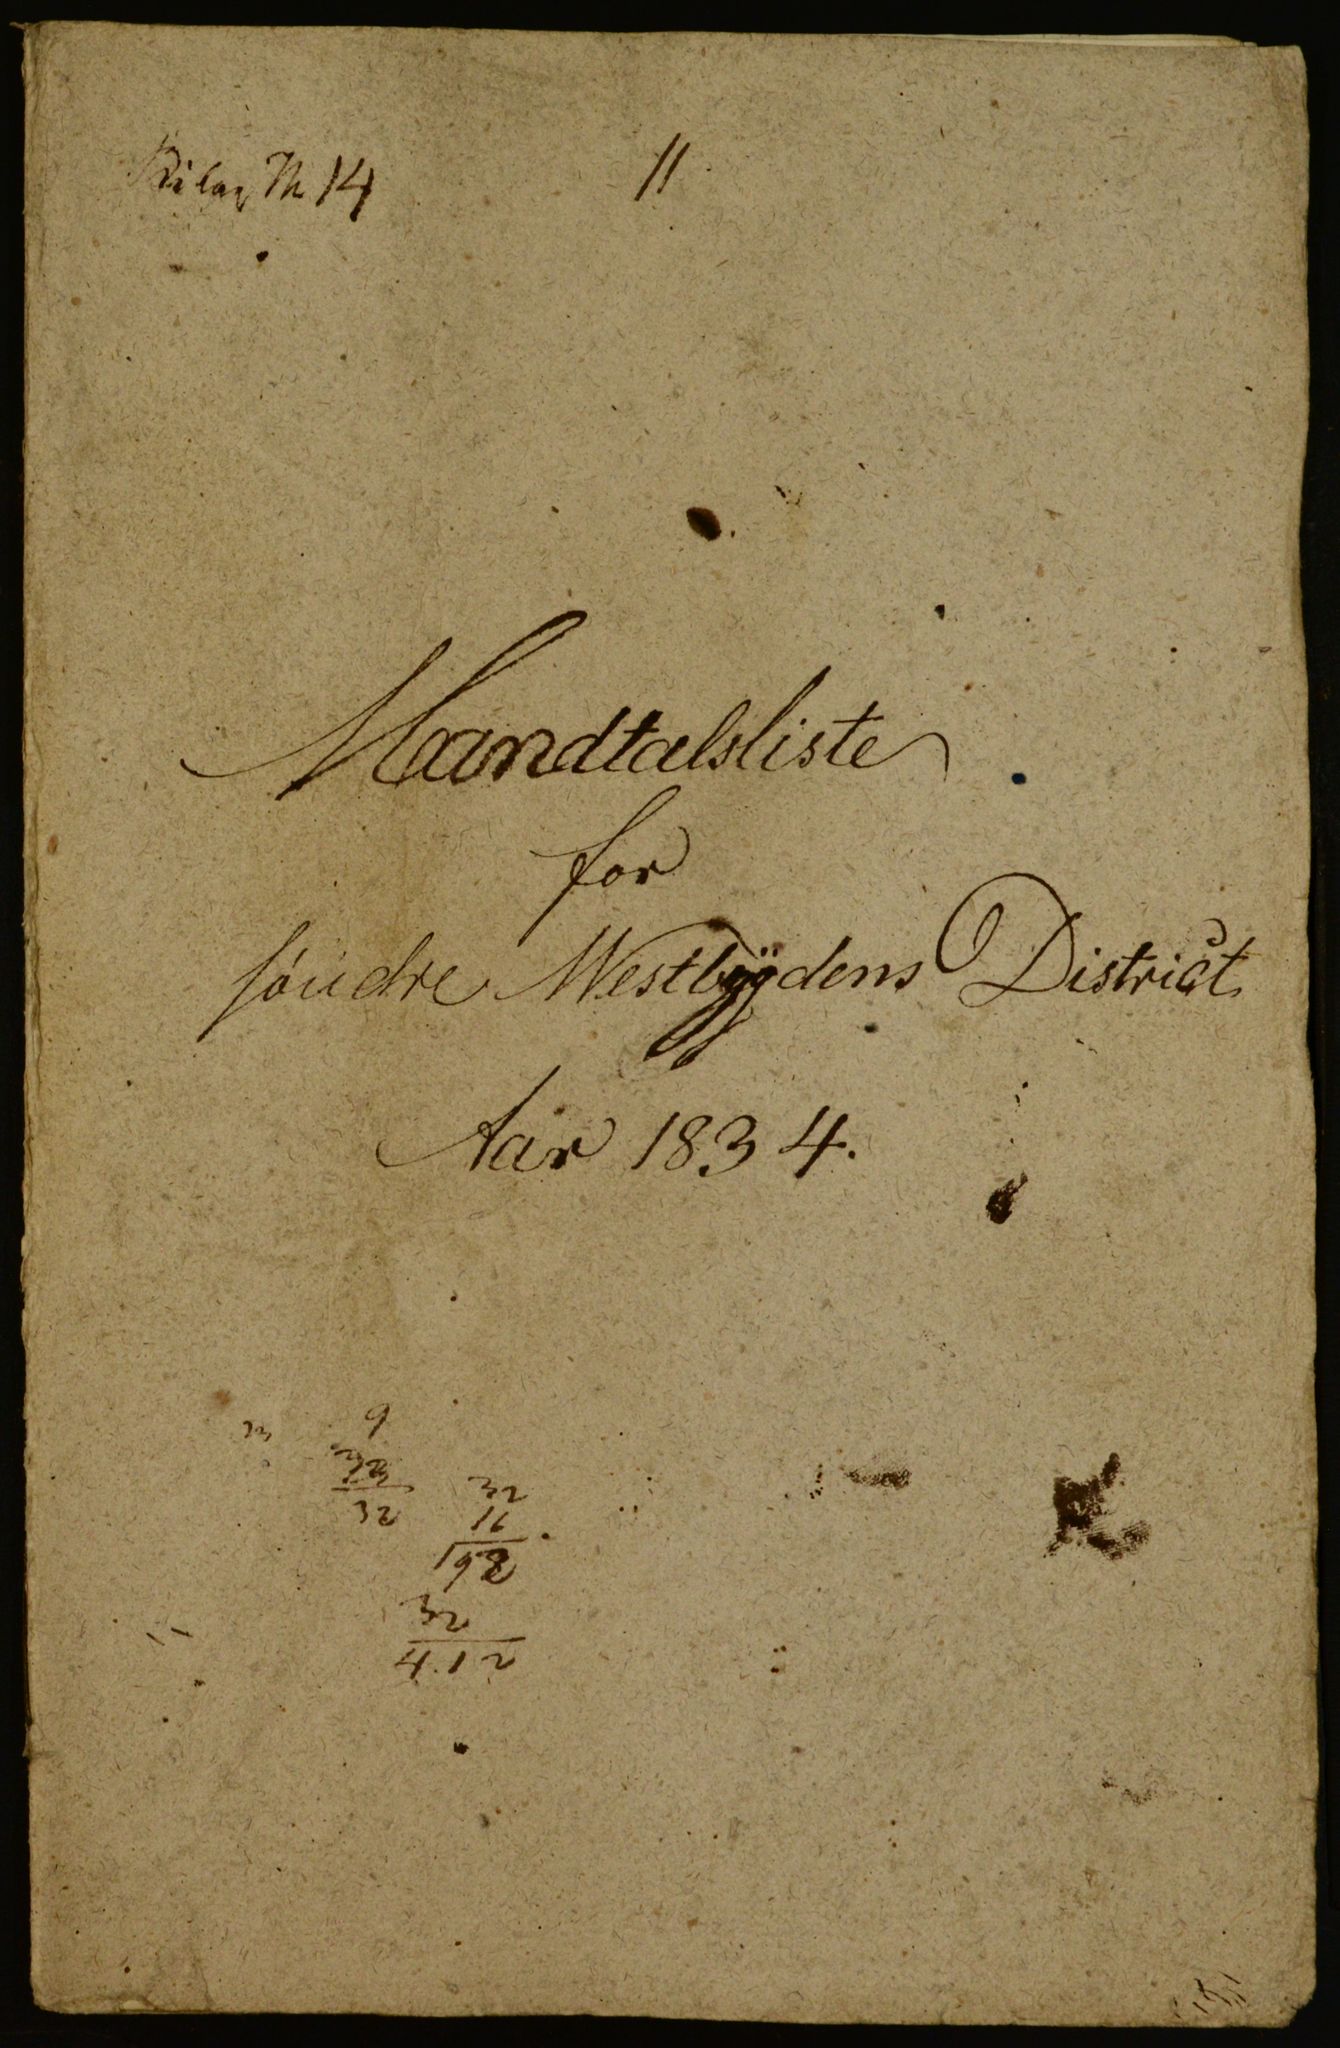 Bilag No 14
11
Mandtalsliste
for
söndre Westbÿgdens District
Aar 1834.
9
23
32
32
16
192
32
4.12